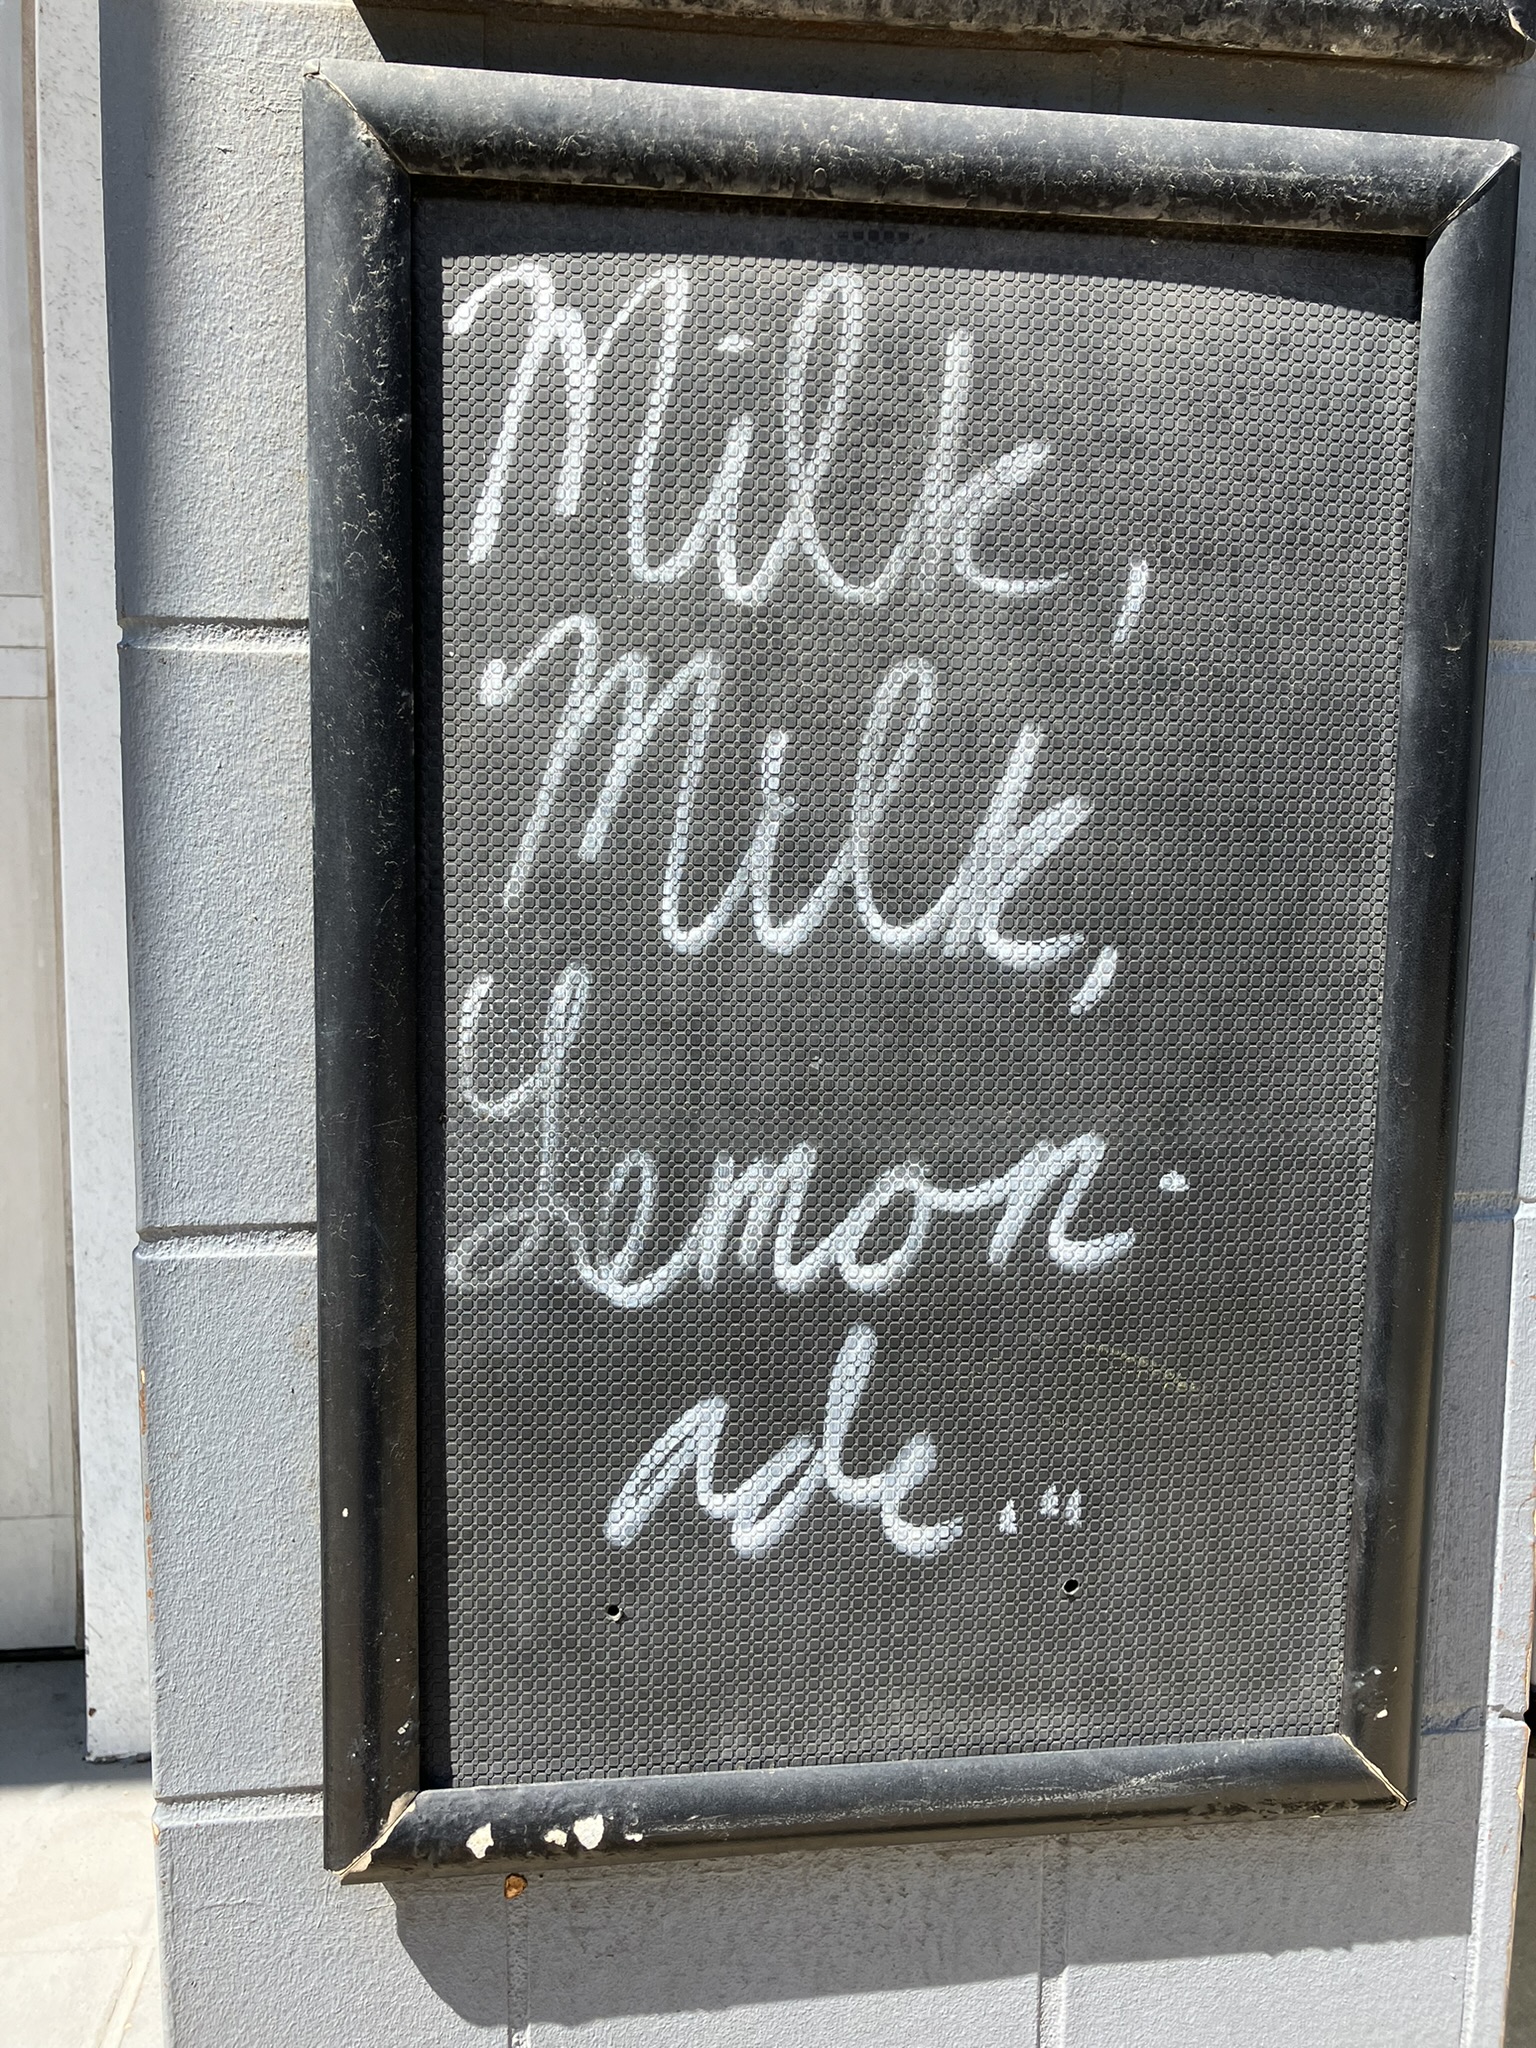 Milk,
Milk,
Lemon-
ade...